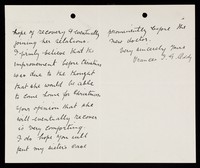 hope of recovery & eventually
joining her relations.
I firmly believe that the
improvement before Christmas
was due to the thought
that she would be able
to come home for Christmas
Your opinion that she
will eventually recover
is very comforting.
I do hope you will
put my sister's case
prominently before the
new doctor.
Very sincerely yours
Frances